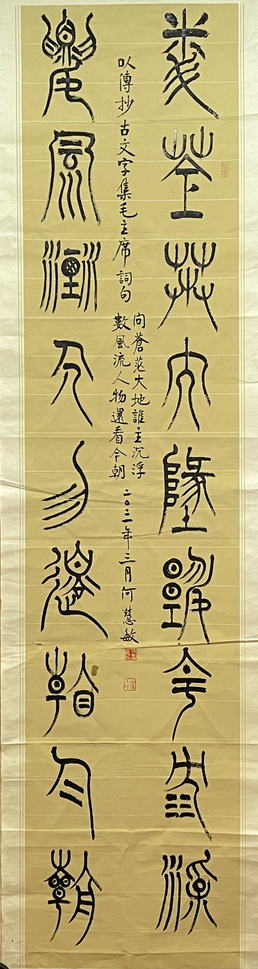 問蒼茫大地誰主沉浮
以傳抄古文字集毛主席詞句
問蒼茫大地誰主沉浮
數風流人物還看今朝
二〇二一年三月何慧敏
數風流人物還看今朝